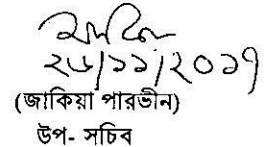 ২৮/১১/২০১৭
(জাকিয়া পারভীন)
উপ- সচিব